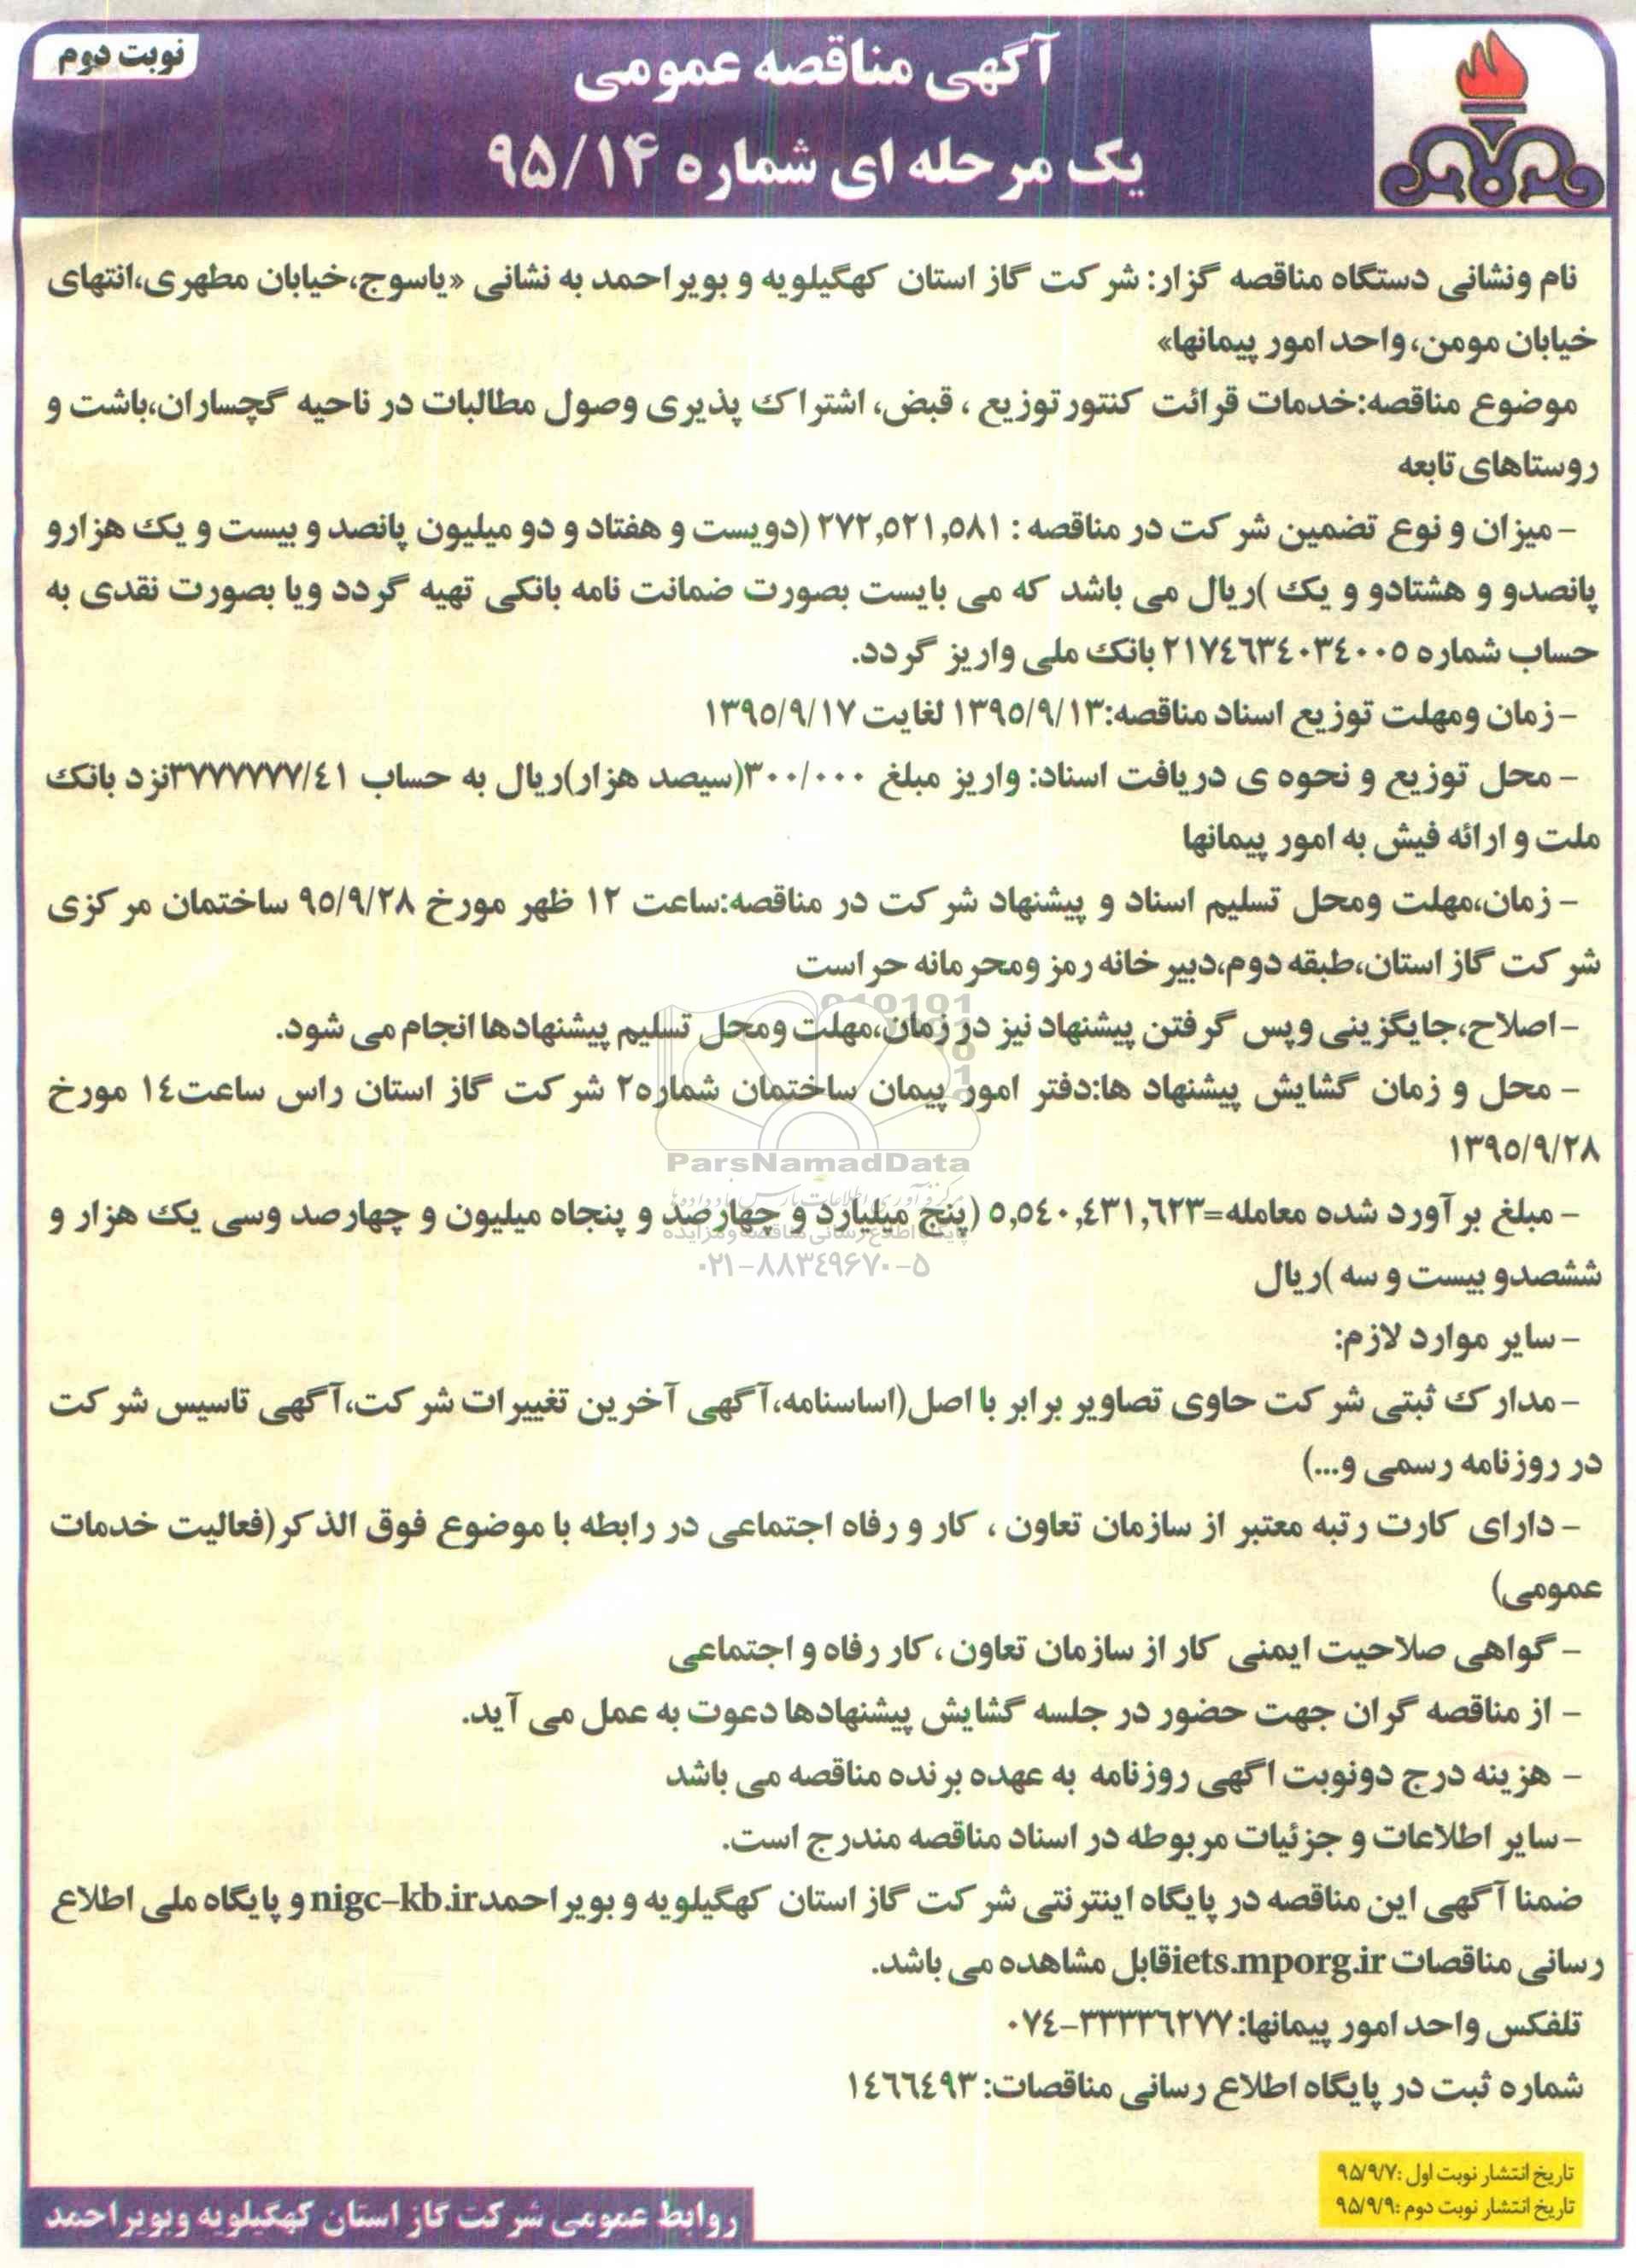 نوبت دوم
آگهی مناقصه عمومی
یک مرحله ای شماره ۹۵/۱۴
نام ونشانی دستگاه مناقصه گزار: شرکت گاز استان کهگیلویه و بویراحمد به نشانی «یاسوج،خیابان مطهری،انتهای
خیابان مومن، واحد امور پیمانها»
موضوع مناقصه:خدمات قرائت کنتور توزیع ، قبض، اشتراک پذیری وصول مطالبات در ناحیه گچساران،باشت و
روستاهای تابعه
- میزان و نوع تضمین شرکت در مناقصه : ۲۷۲,۵۲۱,۵۸۱ (دویست و هفتاد و دو میلیون پانصد و بیست و یک هزارو
پانصدو و هشتادو و یک )ریال می باشد که می بایست بصورت ضمانت نامه بانکی تهیه گردد ویا بصورت نقدی به
حساب شماره ۲۱۷٤٦۳٤۰۳٤۰۰۵ بانک ملی واریز گردد.
- زمان ومهلت توزیع اسناد مناقصه:۱۳۹۵/۹/۱۳ لغایت ۱۳۹۵/۹/۱۷
- محل توزیع و نحوه ی دریافت اسناد: واریز مبلغ ۳۰۰/۰۰۰(سیصد هزار)ریال به حساب ۳۷۷۷۷۷۷/٤۱نزد بانک
ملت و ارائه فیش به امور پیمانها
- زمان،مهلت ومحل تسلیم اسناد و پیشنهاد شرکت در مناقصه:ساعت ۱۲ ظهر مورخ ۹۵/۹/۲۸ ساختمان مرکزی
شرکت گاز استان،طبقه دوم،دبیرخانه رمز ومحرمانه حراست
- اصلاح،جایگزینی وپس گرفتن پیشنهاد نیز در زمان،مهلت ومحل تسلیم پیشنهادها انجام می شود.
- محل و زمان گشایش پیشنهاد ها:دفتر امور پیمان ساختمان شماره۲ شرکت گاز استان راس ساعت۱٤ مورخ
۱۳۹۵/۹/۲۸
ParsNamadData
- مبلغ برآورد شده معامله=۵,۵٤۰,٤۳۱,٦۲۳ (پنج میلیارد و چهارصد و پنجاه میلیون و چهارصد وسی یک هزار و
پایگاه اطلاع رسانی مناقصه و مزایده
۰۲۱-۸۸۳۴۹۶۷۰-۵
ششصدو بیست و سه )ریال
- سایر موارد لازم:
- مدارک ثبتی شرکت حاوی تصاویر برابر با اصل(اساسنامه،آگهی آخرین تغییرات شرکت،آگهی تاسیس شرکت
در روزنامه رسمی و...)
- دارای کارت رتبه معتبر از سازمان تعاون ، کار و رفاه اجتماعی در رابطه با موضوع فوق الذکر(فعالیت خدمات
عمومی)
- گواهی صلاحیت ایمنی کار از سازمان تعاون ، کار رفاه و اجتماعی
- از مناقصه گران جهت حضور در جلسه گشایش پیشنهادها دعوت به عمل می آید.
- هزینه درج دونوبت اگهی روزنامه به عهده برنده مناقصه می باشد
- سایر اطلاعات و جزئیات مربوطه در اسناد مناقصه مندرج است.
ضمنا آگهی این مناقصه در پایگاه اینترنتی شرکت گاز استان کهگیلویه و بویراحمدnigc-kb.ir و پایگاه ملی اطلاع
رسانی مناقصات iets.mporg.irقابل مشاهده می باشد.
تلفکس واحد امور پیمانها: ۳۳۳۳٦۲۷۷-۰۷٤
شماره ثبت در پایگاه اطلاع رسانی مناقصات: ۱٤٦٦٤۹۳
تاریخ انتشار نوبت اول :۹۵/۹/۷
تاریخ انتشار نوبت دوم :۹۵/۹/۹
روابط عمومی شرکت گاز استان کهگیلویه وبویراحمد